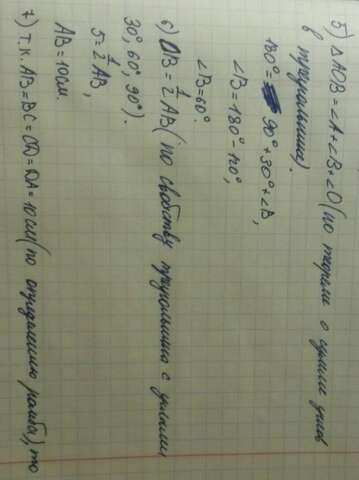 5) △AOB = ∠A + ∠B + ∠O (по теореме о сумме углов
в треугольнике).
180° = 90° + 30° + ∠B,
∠B = 180° - 120°,
∠B = 60°.
6) OB = ½ AB (по свойству треугольника с углами
30°, 60°, 90°).
5 = ½ AB,
AB = 10 см.
7) Т.к. AB = BC = CD = DA = 10 см (по определению ромба), то